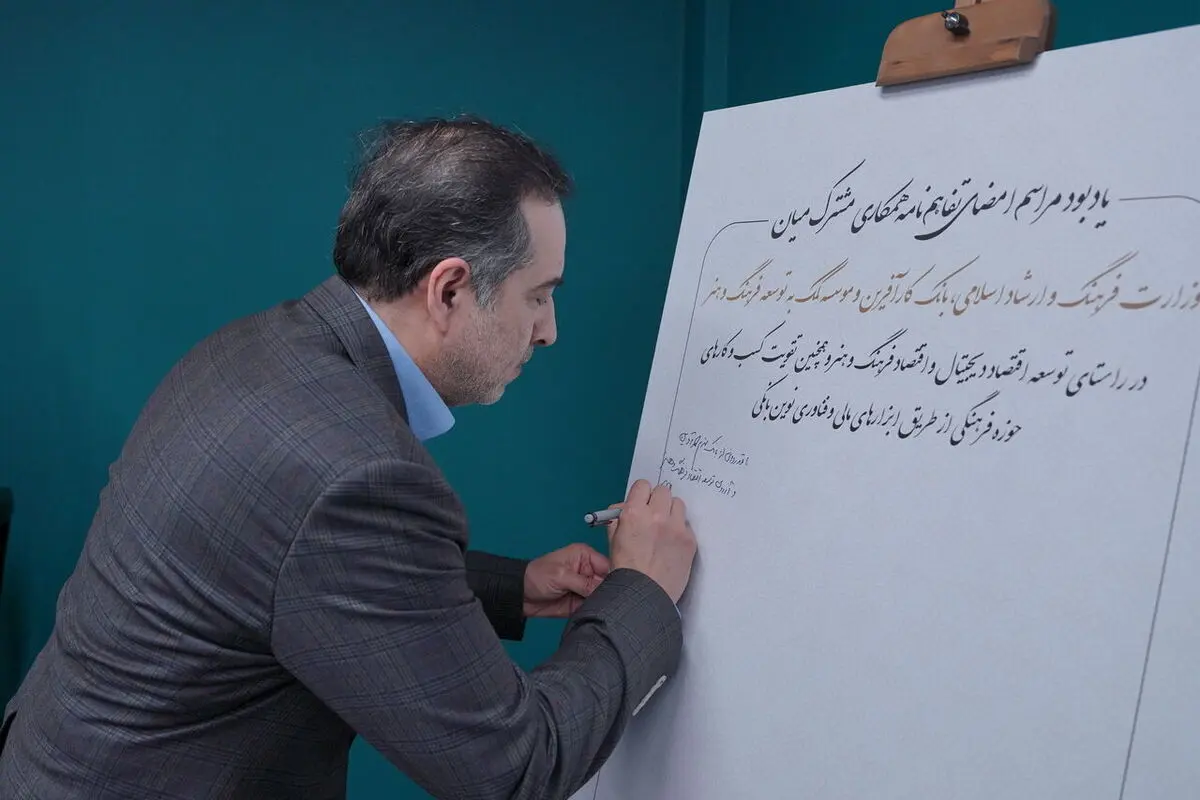 یادبود مراسم امضای تفاهم‌نامه همکاری مشترک میان
وزارت فرهنگ و ارشاد اسلامی، بانک کارآفرین و موسسه کمک به توسعه فرهنگ و هنر
در راستای توسعه اقتصاد دیجیتال و اقتصاد فرهنگ و هنر و همچنین تقویت کسب و کارهای
حوزه فرهنگی از طریق ابزارهای مالی و فناوری نوین بانکی
با قدردانی از بانک
و آرزوی توسعه اقتصاد فرهنگ و هنر